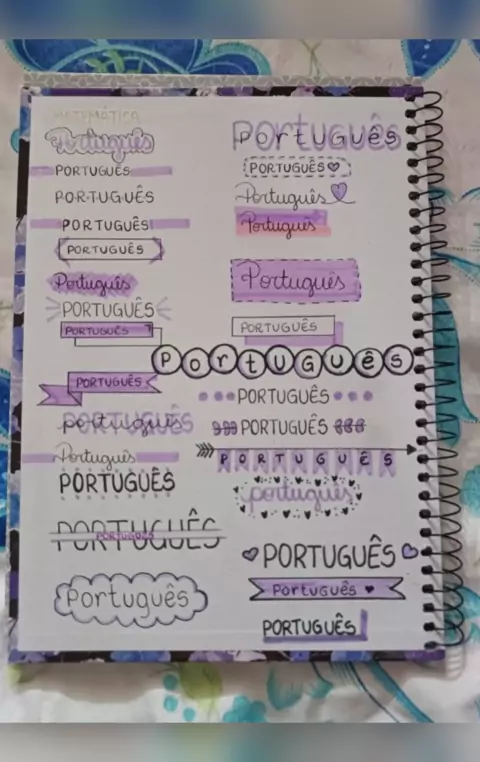 MATEMÁTICA
Português
PORTUGUÊS
POR-TU-GUÊS
PORTUGUÊS
PORTUGUÊS
Português
PORTUGUÊS
PORTUGUÊS
PORTUGUÊS
português
PORTUGUÊS
Português
PORTUGUÊS
PORTUGUÊS
PORTUGUÊS
Português
PORTUGUÊS
Português
PORTUGUÊS
Português
Português
Português
PORTUGUÊS
PortUGUêS
PORTUGUÊS
PORTUGUÊS
PORTUGUÊS
português
PORTUGUÊS
Português
PORTUGUÊS